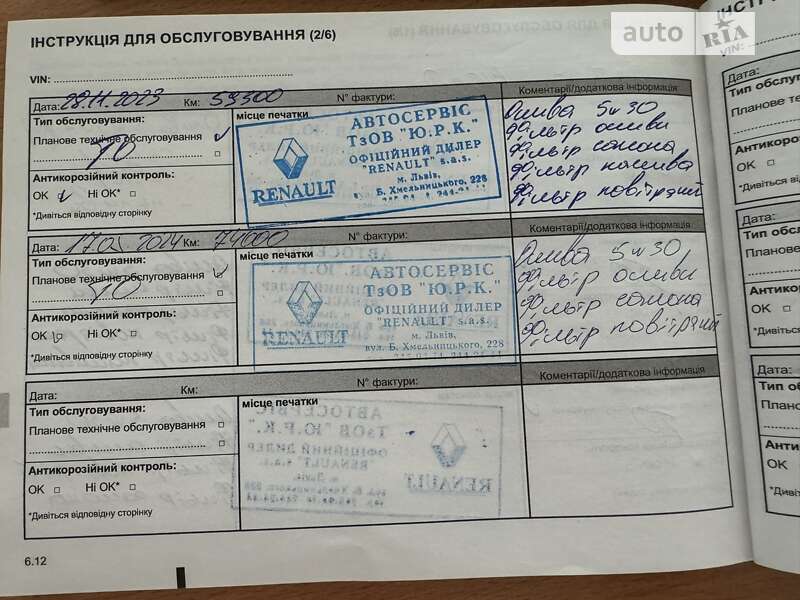 ІНСТРУКЦІЯ ДЛЯ ОБСЛУГОВУВАННЯ (2/6)
auto RIA
VIN:
Дата: 28.11.2023 Км: 59300 N° фактури: Коментарії/додаткова інформація
Тип обслуговування:
Планове технічне обслуговування
ТО
Антикорозійний контроль:
OK Ні OK*
*Дивіться відповідну сторінку
місце печатки
АВТОСЕРВІС
ТзОВ "Ю.Р.К."
ОФІЦІЙНИЙ ДИЛЕР
"RENAULT" s.a.s.
м. Львів,
вул. Б. Хмельницького, 228
RENAULT
Олива 5w30
Фільтр оливи
Фільтр салона
Фільтр палива
Фільтр повітряний
Дата: 2024 Км: 74000 N° фактури: Коментарії/додаткова інформація
Тип обслуговування:
Планове технічне обслуговування
ТО
Антикорозійний контроль:
OK Ні OK*
*Дивіться відповідну сторінку
місце печатки
АВТОСЕРВІС
ТзОВ "Ю.Р.К."
ОФІЦІЙНИЙ ДИЛЕР
"RENAULT" s.a.s.
м. Львів,
вул. Б. Хмельницького, 228
RENAULT
Олива 5w30
Фільтр оливи
Фільтр салона
Фільтр повітряний
Дата: Км: N° фактури: Коментарії/додаткова інформація
Тип обслуговування:
Планове технічне обслуговування
Антикорозійний контроль:
OK Ні OK*
*Дивіться відповідну сторінку
місце печатки
6.12
VIN:
Дата:
Тип обслу
Планове те
Антикорозі
OK
*Дивіться ві
Дата:
Тип обс
Планове
Антикор
OK
*Дивітьс
Дата:
Тип об
Антик
OK
*Дивіт